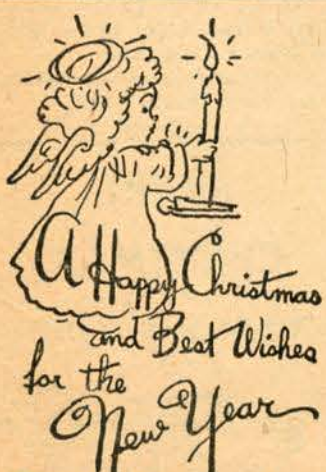 A Happy Christmas
and Best Wishes
for the
New Year